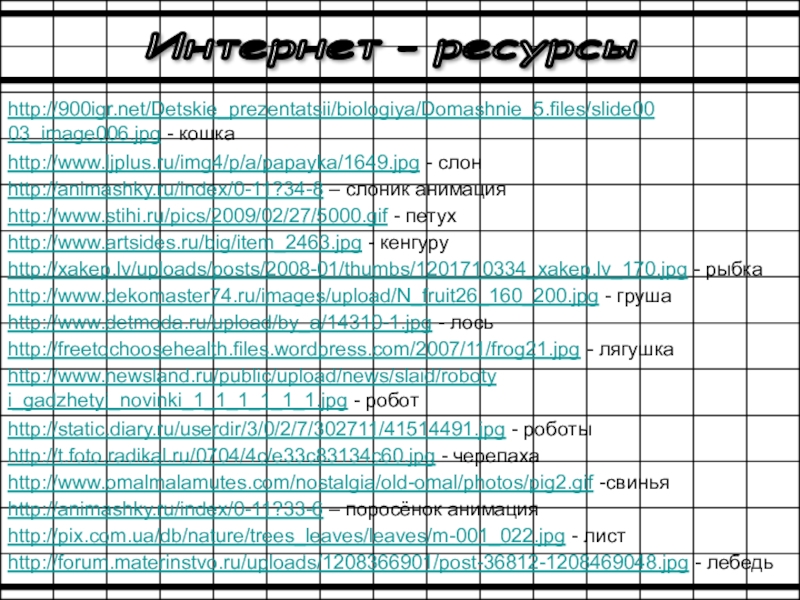 Интернет - ресурсы
http://900igr.net/Detskie_prezentatsii/biologiya/Domashnie_5.files/slide00
03_image006.jpg - кошка
http://www.ljplus.ru/img4/p/a/papayka/1649.jpg - слон
http://animashky.ru/index/0-11?34-8 – слоник анимация
http://www.stihi.ru/pics/2009/02/27/5000.gif - петух
http://www.artsides.ru/big/item_2463.jpg - кенгуру
http://xakep.lv/uploads/posts/2008-01/thumbs/1201710334_xakep.lv_170.jpg - рыбка
http://www.dekomaster74.ru/images/upload/N_fruit26_160_200.jpg - груша
http://www.detmoda.ru/upload/by_a/14310-1.jpg - лось
http://freetochoosehealth.files.wordpress.com/2007/11/frog21.jpg - лягушка
http://www.newsland.ru/public/upload/news/slaid/roboty
i_gadzhety_novinki_1_1_1_1_1_1.jpg - робот
http://static.diary.ru/userdir/3/0/2/7/302711/41514491.jpg - роботы
http://t.foto.radikal.ru/0704/4c/e33c83134c60.jpg - черепаха
http://www.omalmalamutes.com/nostalgia/old-omal/photos/pig2.gif -свинья
http://animashky.ru/index/0-11?33-6 – поросёнок анимация
http://pix.com.ua/db/nature/trees_leaves/leaves/m-001_022.jpg - лист
http://forum.materinstvo.ru/uploads/1208366901/post-36812-1208469048.jpg - лебедь